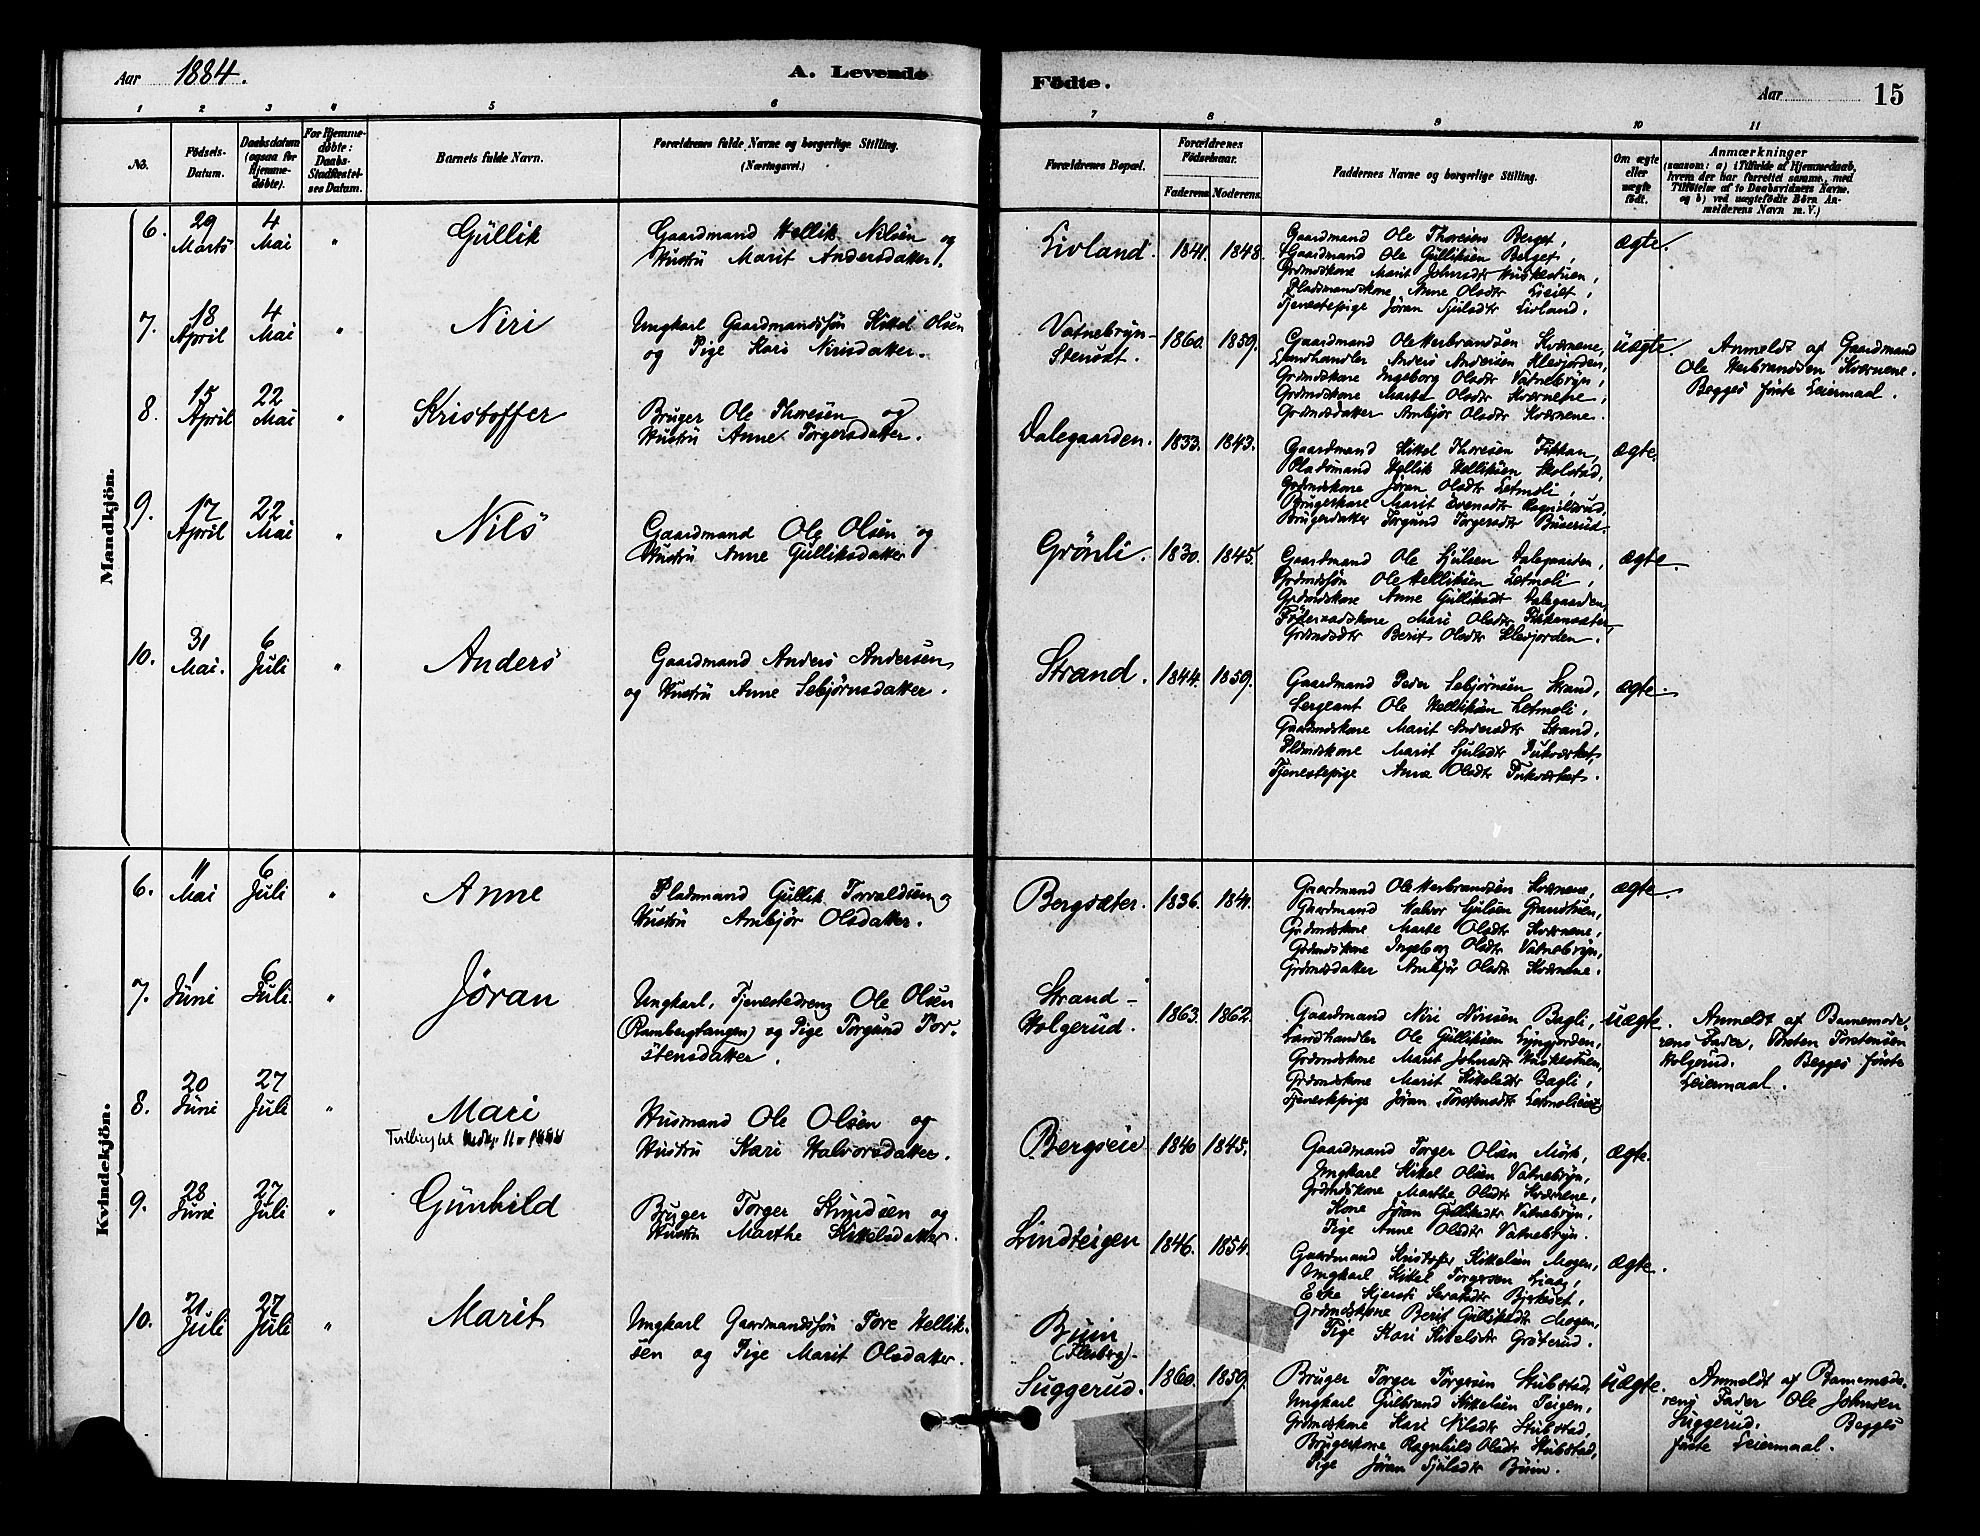 Aar 1884.
A. Levende
Födte.
Aar
15
1 2 3 " 5 6 7 8 9 10 11
No.
Födsels-Datum.
Daabsdatum (ogsaa for Hjemmedöbte).
For Hjemmedöbte: Daabs-Stadfæstelses Datum.
Barnets fulde Navn.
Forældrenes fulde Navne og borgerlige Stilling.
(Næringsvei.)
Forældrenes Bopæl.
Forældrenes Födselsaar.
Faderens Moderens.
Faddernes Navne og borgerlige Stilling.
Om ægte eller uægte födt.
Anmærkninger
(saasom: a) i Tilfælde af Hjemmedaab,
hvem der har forrettet samme, med
Tilföielse af to Daabsvidners Navne,
og b) ved uægtefödte Börn An-
melderens Navn m. V.)
Mandkjön.
6. 29 Marts 4 Mai " Güllik
Gaardmand Hellik Nilsen og
Hustru Marit Andersdatter.
Livland. 1841. 1848.
Gaardmand Ole Thoresen Berget,
Gaardmand Ole Gülliksen Berget,
Grdmdskone Marit Johnsdtr
Pladsmandskone Anne Olsdtr
Tjenestepige Jøran Sjulsdtr Livland.
ægte.
7. 18 April 4 Mai " Niri
Ungkarl Gaardmandssøn Kittel Olsen
og Pige Kari Nirisdatter.
Vatnebryn-
1860. 1859.
Gaardmand Ole Herbrandsen Kværnene,
Landhandler Anders Andersen Klevjorden,
Grdmdskone Ingeborg Olsdtr Vatnebryn,
Grdmdskone Marte Olsdtr Kværnene,
Grdmdsdatter Ambjør Olsdtr Kværnene.
üægte.
Anmeldt af Gaardmand
Ole Herbrandsen Kværnene.
Begges første Leiermaal.
8. 15 April 22 Mai " Kristoffer
Bruger Ole Thoresen og
Hustru Anne Torgersdatter.
Dalegaarden. 1833. 1843.
Gaardmand Kittel Thoresen
Pladsmand Hellik Helliksen Skolstad,
Grdmdskone Jøran Olsdtr Letmoli,
Brugerskone Marit Evensdtr
Brugerdatter Torgund Torgersdtr
ægte.
9. 17 April 22 Mai " Nils
Gaardmand Ole Olsen og
Hustru Anne Gülliksdatter
Grönli. 1830. 1845.
Gaardmand Ole Sjulsen Dalegaarden,
Grdmdssøn Ole Helliksen Letmoli,
Grdmdskone Anne Gülliksdt Dalegaarden,
Føderaadskone Mari Olsdtr
Grdmdsdtr Berit Olsdtr Klevjorden.
ægte.
10. 31 Mai. 6 Juli " Anders
Gaardmand Anders Andersen
og Hustru Anne Sebjørnsdatter.
Strand. 1844. 1859.
Gaardmand Peder Sebjørnsen Strand,
Sergeant Ole Helliksen Letmoli,
Gaardmdskone Marit Andersdtr Strand,
Pldmdskone Marit Sjulsdtr Pukværket,
Tjenestepige Anne Olsdtr Pukværket.
ægte.
Kvindekjön.
6. 11 Mai 6 Juli " Anne
Pladsmand Güllik Torvaldsen og
Hustru Ambjør Olsdatter.
Bergsæter. 1836. 1841.
Gaardmand Ole Herbrandsen Kværnene,
Gaardmand Halvor Sjulsen
Grdmdskone Marte Olsdtr Kværnene,
Grdmdskone Ingeborg Olsdtr Vatnebryn,
Grdmdsdatter Ambjør Olsdtr Kværnene.
ægte.
7. 1 Jüni 6 Juli. " Jøran
Ungkarl, Tjenestedreng Ole Olsen
(Rambergtangen) og Pige Torgund Tor-
stensdatter.
Strand-
Holgerud. 1863. 1862.
Gaardmand Niri Nirisen Bagli,
Landhandler Ole Gülliksen Lyngjorden,
Grdmdskone Marit Johnsdtr
Grdmdskone Marit Kittelsdtr Bagli,
Tjenestepige Jøran Torstensdtr
uægte.
Anmeldt af Barnemode-
rens Fader, Torsten Torstensen
Holgerud. Begges første
Leiermaal.
8. 20 Jüni 27 Juli " Mari
Husmand Ole Olsen og
Hustru Kari Halvorsdatter.
Bergseie 1840 1845.
Gaardmand Torger Olsen Mörk,
Ungkarl Kittel Olsen Vatnebryn,
Grdmdskone Marthe Olsdtr Kværnene,
Kone Jøran Gülliksdtr Vatnebryn,
Pige Anne Olsdtr Vatnebryn.
ægte.
9. 28 Jüni 27 Juli " Günhild
Bruger Torger Knudsen og
Hustru Marthe Kittelsdatter.
Lindteigen 1846. 1854.
Gaardmand Kristoffer Kittelsen Mogen,
Ungkarl Kittel Torgersen Liaas,
Enke Kjersti
Grdmdskone Berit Gülliksdtr Mogen,
Pige Kari Kittelsdtr Gröterud.
ægte.
10. 21 Juli 27 Juli " Marit
Ungkarl Gaardmandssøn Tore Hellik-
sen og Pige Marit Olsdatter.
Buin
(Flesberg)-
Suggerud. 1860. 1859.
Bruger Torger Torgersen Stubstad,
Ungkarl Gulbrand Kittelsen Teigen,
Grdmdskone Kari Nilsdtr Stubstad,
Brugerskone Ragnhild Olsdtr Stubstad,
Pige Jøran Sjulsdtr Buin.
uægte.
Anmeldt af Barnemode-
rens Fader Ole Johnsen
Suggerud. Begges
første Leiermaal.